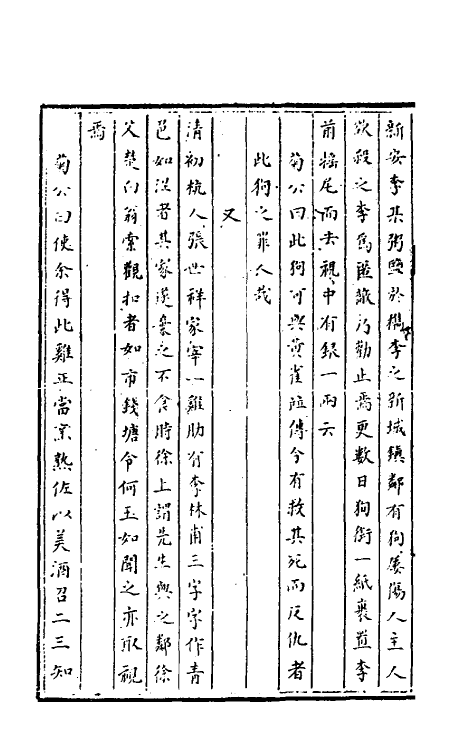 新安李某粥鹽於檇李之新城鎮鄰有狗屢傷人主人
欲殺之李為匿藏乃勸止焉更數日狗銜一紙裹置李
前搖尾而去視中有銀一兩六
菊公曰此狗可與黃雀並傳今有救其死而反仇者
此狗之罪人哉
又
清初杭人張世祥家宰一雞肋有李林甫三字字作青
色如涅者其家遂棄之不食時徐上謂先生與之鄰徐
父楚白翁索觀扣者如市錢塘令何玉如聞之亦取視
焉
菊公曰使余得此雞正當烹熟佐以美酒召二三知